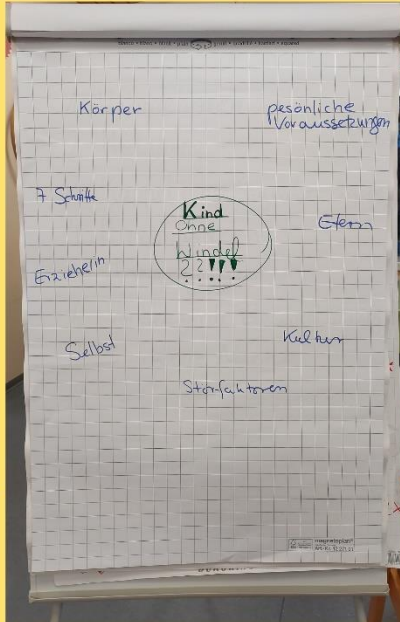 Körper
pesönliche
Voraussetzungen
7 Schritte
Kind
Ohne
Windel
??!!!
Eltern
Erzieherin
Selbst
Kultur
Störfaktoren
magnetoplan